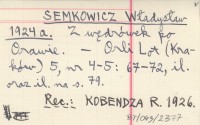 SEMKOWICZ Władysław
1924a. Z wędrówek po
Orawie. – Orli Lot (Kra-
ków) 5, nr 4-5: 67-72, il.
oraz il. na s. 79.
Rec.: KOBENDZA R. 1926.